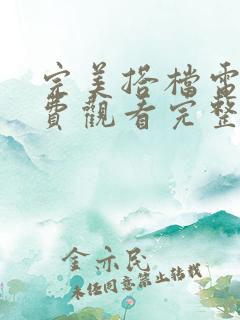 完美搭檔電
費觀看完整
金示民
未经同意禁止转载